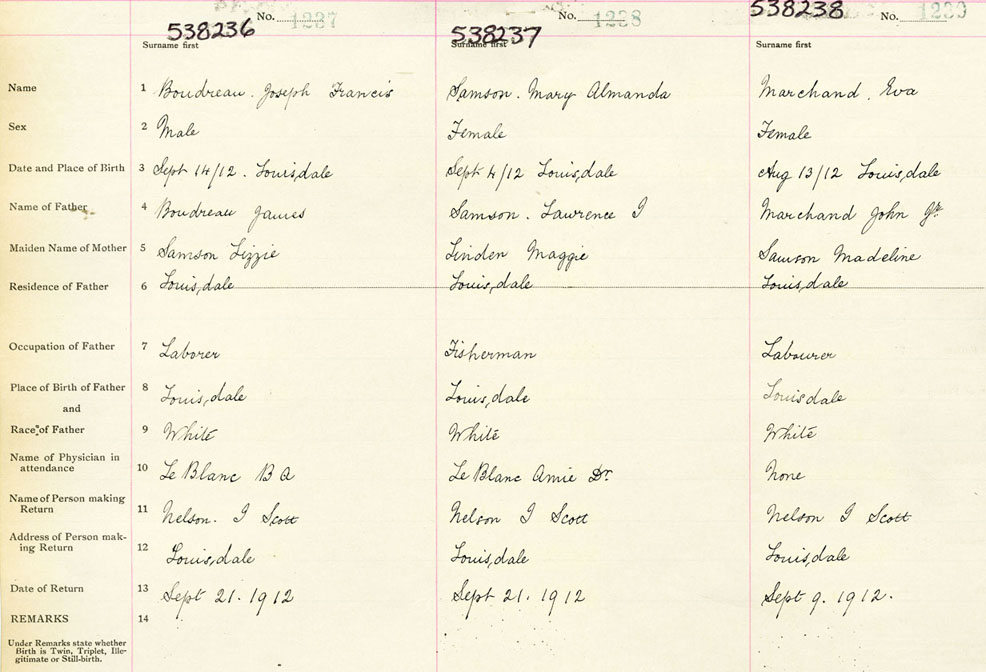 538236 No. 1237 538237 No. 1238 538238 No. 1239
Surname first Surname first Surname first
Name 1 Boudreau. Joseph Francis Samson. Mary Almanda Marchand. Eva
Sex 2 Male Female Female
Date and Place of Birth 3 Sept 14/12. Louisdale Sept 4/12 Louisdale Aug 13/12 Louisdale
Name of Father 4 Boudreau James Samson. Lawrence J Marchand John Jr
Maiden Name of Mother 5 Samson Lizzie Linden Maggie Samson Madeline
Residence of Father 6 Louisdale Louisdale Louisdale
Occupation of Father 7 Laborer Fisherman Labourer
Place of Birth of Father 8 Louisdale Louisdale Louisdale
and
Race of Father 9 White White White
Name of Physician in
attendance 10 Le Blanc B A Le Blanc Amie Dr. None
Name of Person making
Return 11 Nelson. J Scott Nelson J Scott Nelson J Scott
Address of Person mak-
ing Return 12 Louisdale Louisdale Louisdale
Date of Return 13 Sept 21. 1912 Sept 21. 1912 Sept 9. 1912.
REMARKS 14
Under Remarks state whether
Birth is Twin, Triplet, Ille-
gitimate or Still-birth.